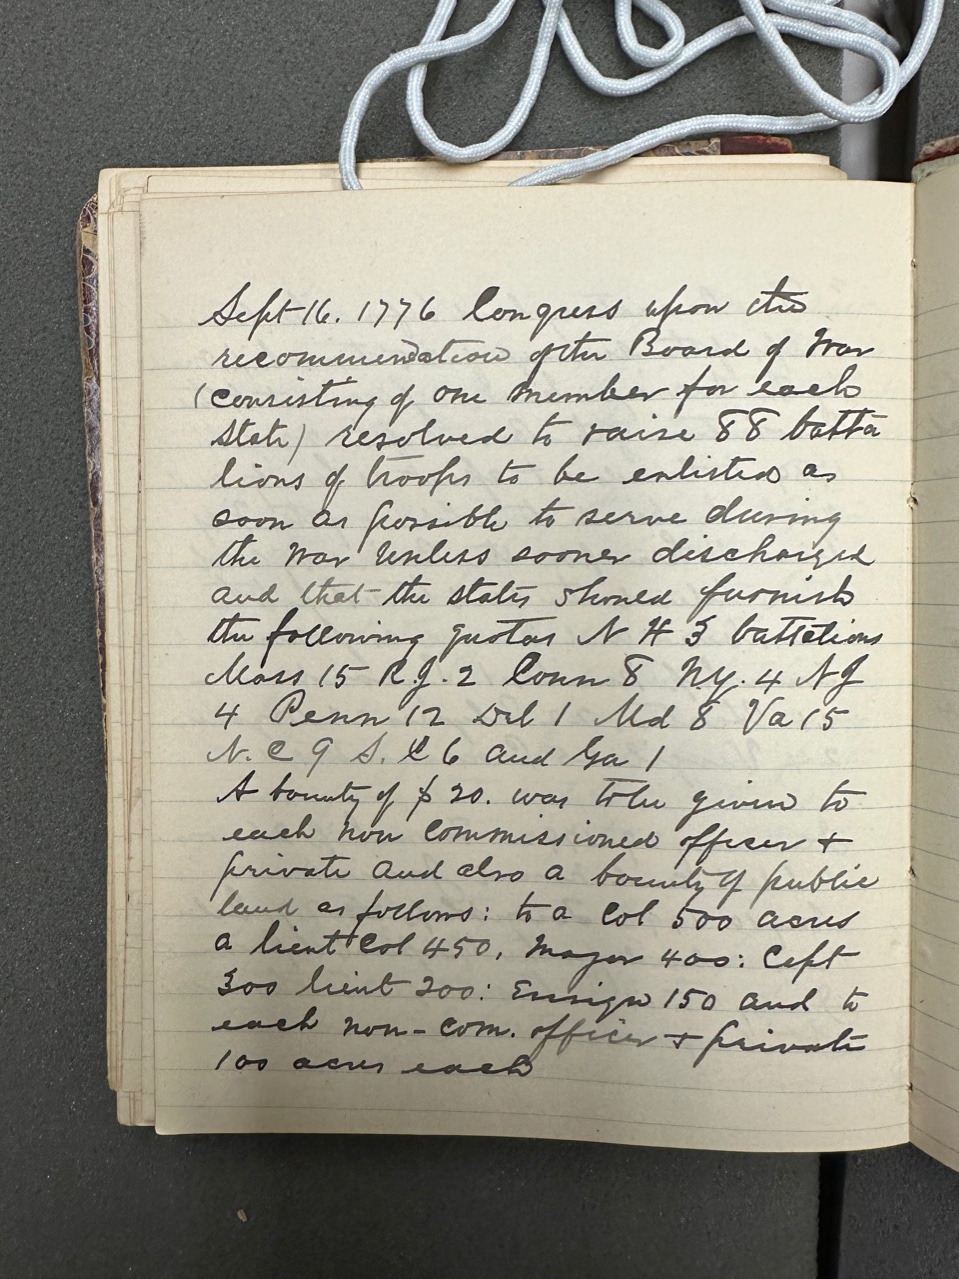 Sept 16. 1776 Congress upon the
recommendation of the Board of War
(consisting of one member for each
state) resolved to raise 88 batta
lions of troops to be enlisted as
soon as possible to serve during
the war unless sooner discharged
and that the states should furnish
the following quotas N H 3 battalions
Mass 15 R.I. 2 Conn 8 N.Y. 4 N J
4 Penn 12 Del 1 Md 8 Va 15
N. C 9 S. C 6 and Ga 1
A bounty of $ 20. was to be given to
each non commissioned officer +
private and also a bounty of public
land as follows: to a Col 500 acres
a lieut Col 450, Major 400: Capt
300 lieut 200: Ensign 150 and to
each non-com. officer + private
100 acres each